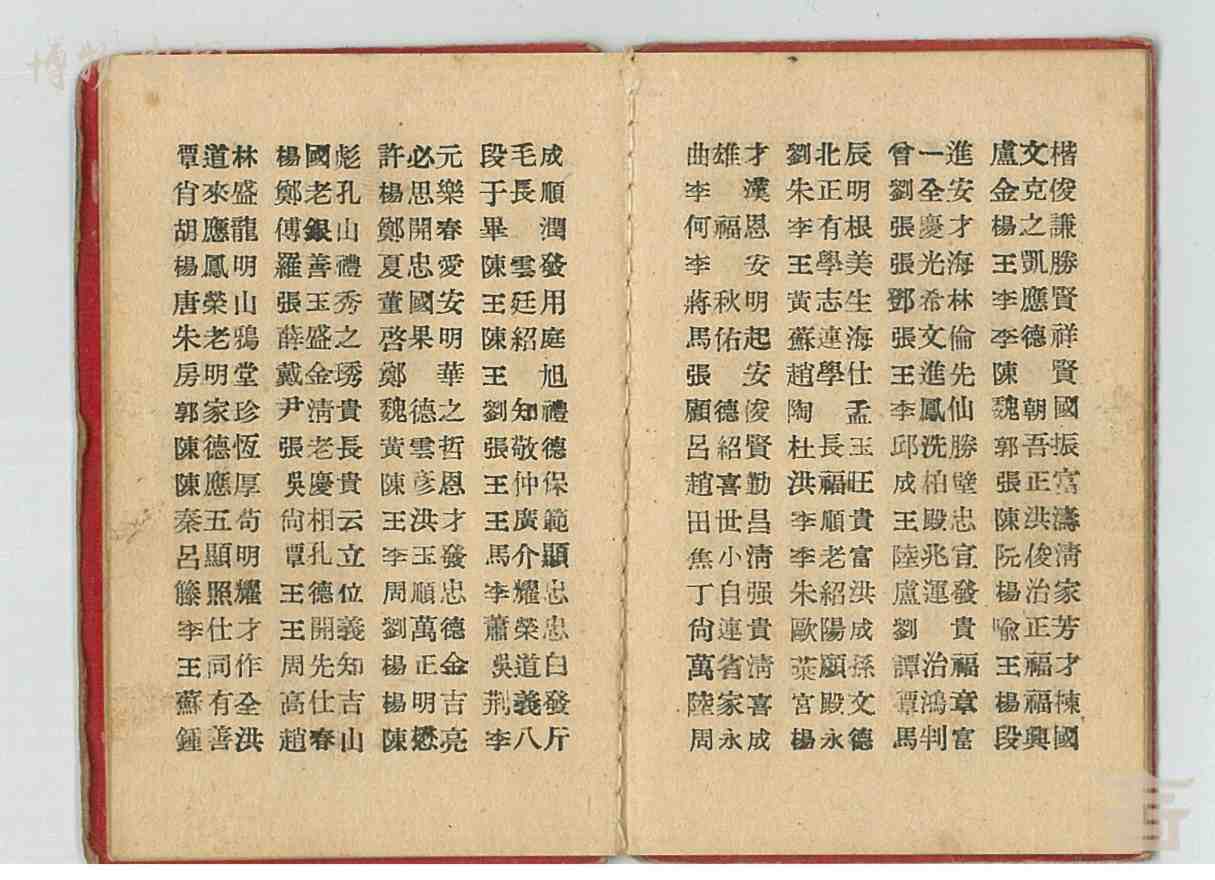 覃道林 楊國彪 許必元 段毛成
肖來盛 鄭老孔 楊思樂 于長順
胡應龍 傅銀山 鄭開春 畢 潤
楊鳳明 羅善禮 夏忠愛 陳雲發
唐榮山 張玉秀 董國安 王廷用
朱老鴉 薛盛之 啓果明 陳紹庭
房明堂 戴金琇 鄭 華 王 旭
郭家珍 尹淸貴 魏德之 劉知禮
陳德恆 張老長 黃雲哲 張敬德
陳應厚 吳慶貴 陳彥恩 王仲保
秦五苟 尙相云 王洪才 王廣範
呂顯明 覃孔立 李玉發 馬介顯
籐照耀 王德位 周順忠 李耀忠
李仕才 王開義 劉萬德 蕭榮忠
王同作 周先知 楊正金 吳道白
蘇有全 高仕吉 楊明吉 荆義發
鍾善洪 趙春山 陳懋亮 李八斤
曲雄才 劉北辰 曾一進 盧文楷
李 漢 朱正明 劉全安 金克俊
何福恩 李有根 張慶才 楊之謙
李 安 王學美 張光海 王凱勝
蔣秋明 黃志生 鄧希林 李應賢
馬佑起 蘇連海 張文倫 李德祥
張 安 趙學仕 王進先 陳 賢
顧德俊 陶 孟 李鳳仙 魏朝國
呂紹賢 杜長玉 邱洗勝 郭吾振
趙喜勤 洪福旺 成柏壁 張正富
田世昌 李順貴 王殿忠 陳洪濤
焦小淸 李老富 陸兆宜 阮俊淸
丁自强 朱紹洪 盧運發 楊治家
尙連貴 歐陽成 劉 貴 喩正芳
萬省淸 葉顧孫 譚治福 王福才
陸家喜 宮殿文 覃鴻章 楊福棟
周永成 楊永德 馬判富 段興國